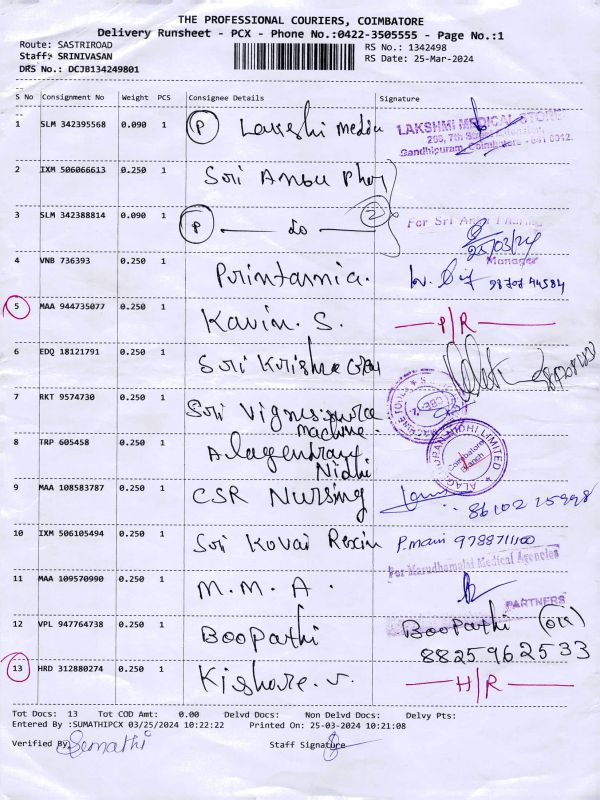 THE PROFESSIONAL COURIERS, COIMBATORE
Delivery Runsheet - PCX - Phone No.:0422-3505555 - Page No.:1
Route: SASTRIROAD
RS No.: 1342498
Staff: SRINIVASAN
RS Date: 25-Mar-2024
DRS No.: DCJB134249801
S No Consignment No Weight PCS Consignee Details Signature
1 SLM 342395568 0.090 1 P Lakshi Medi
LAKSHMI MEDICAL STORE
Gandhipuram, Coimbatore - 641 0012.
2 IXM 506066613 0.250 1 Sri Anbu Phar
3 SLM 342388814 0.090 1 P do 2
For Sri Anbu Pharma
25/03/24
Manager
4 VNB 736393 0.250 1 Printamia.
5 MAA 944735077 0.250 1 Kavin. S. P/R
6 EDQ 18121791 0.250 1 Sri Krishna
7 RKT 9574730 0.250 1 Sri Vignes
machine.
8 TRP 605458 0.250 1 Alagendran
Nidhi
ALAGENDRAN NIDHI LIMITED
Coimbatore
Branch
9 MAA 108583787 0.250 1 CSR Nursing
10 IXM 506105494 0.250 1 Sri Kovai Rexin P.mani 9788711100
For Marudhamalai Medical Agencies
11 MAA 109570990 0.250 1 M.M.A.
PARTNERS
12 VPL 947764738 0.250 1 Boopathi Boopathi
8825962533
13 HRD 312880274 0.250 1 Kishore.v. H/R
Tot Docs: 13 Tot COD Amt: 0.00 Delvd Docs: Non Delvd Docs: Delvy Pts:
Entered By :SUMATHIPCX 03/25/2024 10:22:22 Printed On: 25-03-2024 10:21:08
Verified By Sumathi Staff Signature